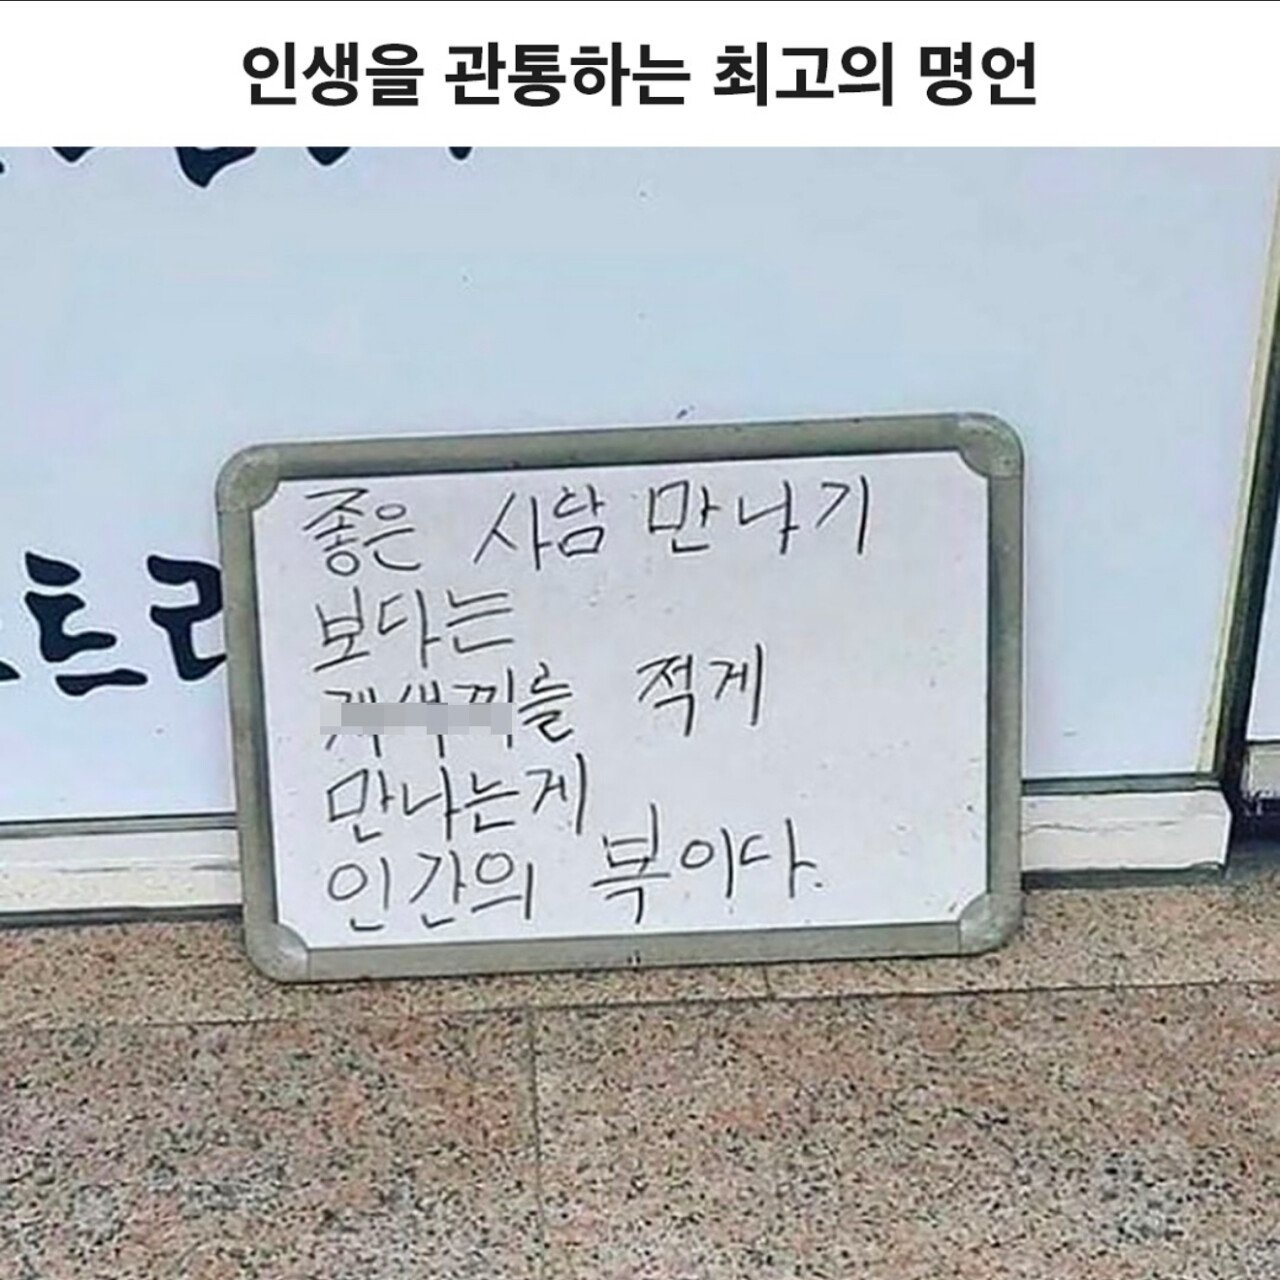 인생을 관통하는 최고의 명언
좋은 사람 만나기
보다는
개새끼를 적게
만나는게
인간의 복이다.
트리